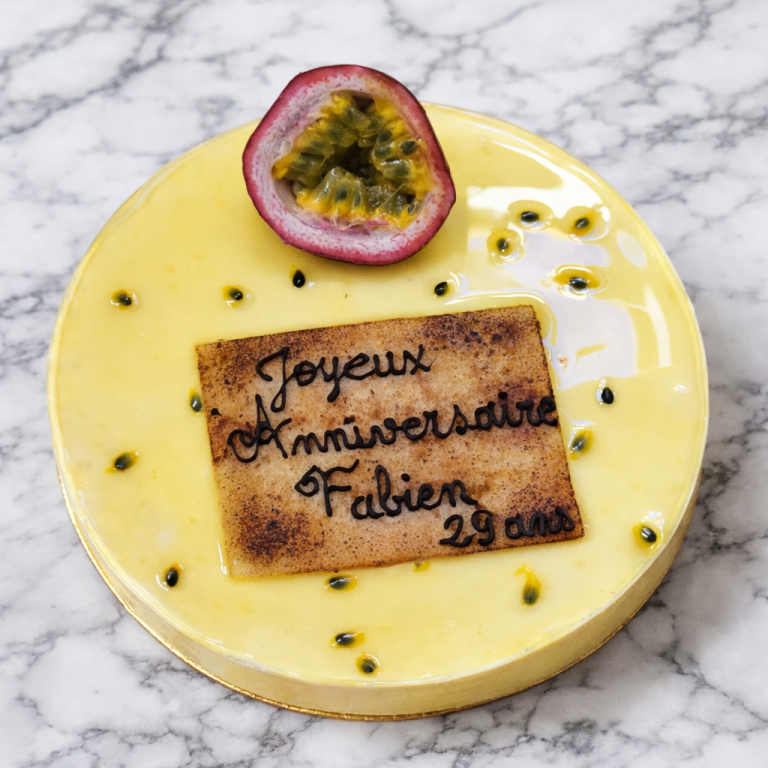 Joyeux
Anniversaire
Fabien
29 ans